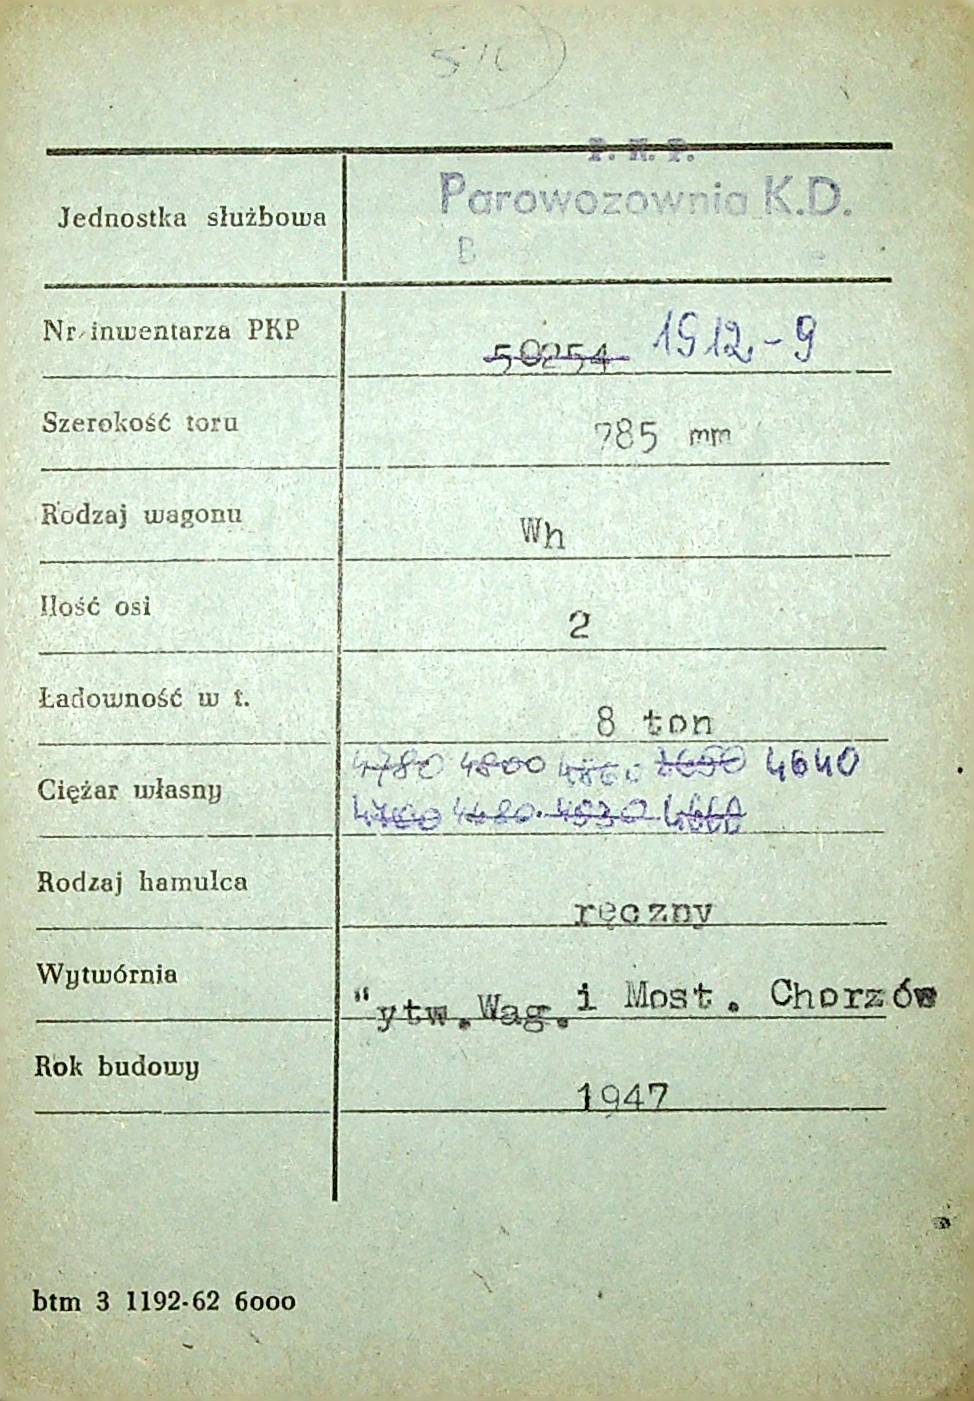 P. K. P.
Parowozownia K.D.
B
Jednostka służbowa
Nr inwentarza PKP 50254 1912-9
Szerokość toru 785 mm
Rodzaj wagonu Wh
Ilość osi 2
Ładowność w t. 8 ton
4780 4800 4640
Ciężar własny
4680 4630
Rodzaj hamulca ręczny
Wytwórnia "ytw.Wag.i Most. Chorzów
Rok budowy 1947
btm 3 1192-62 6000